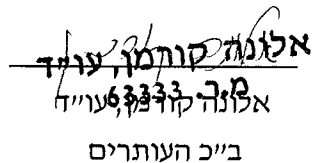 אלונה קורמן, עו״ד
מ.ר. 63333
אלונה קורמן, עו״ד
ב״כ העותרים